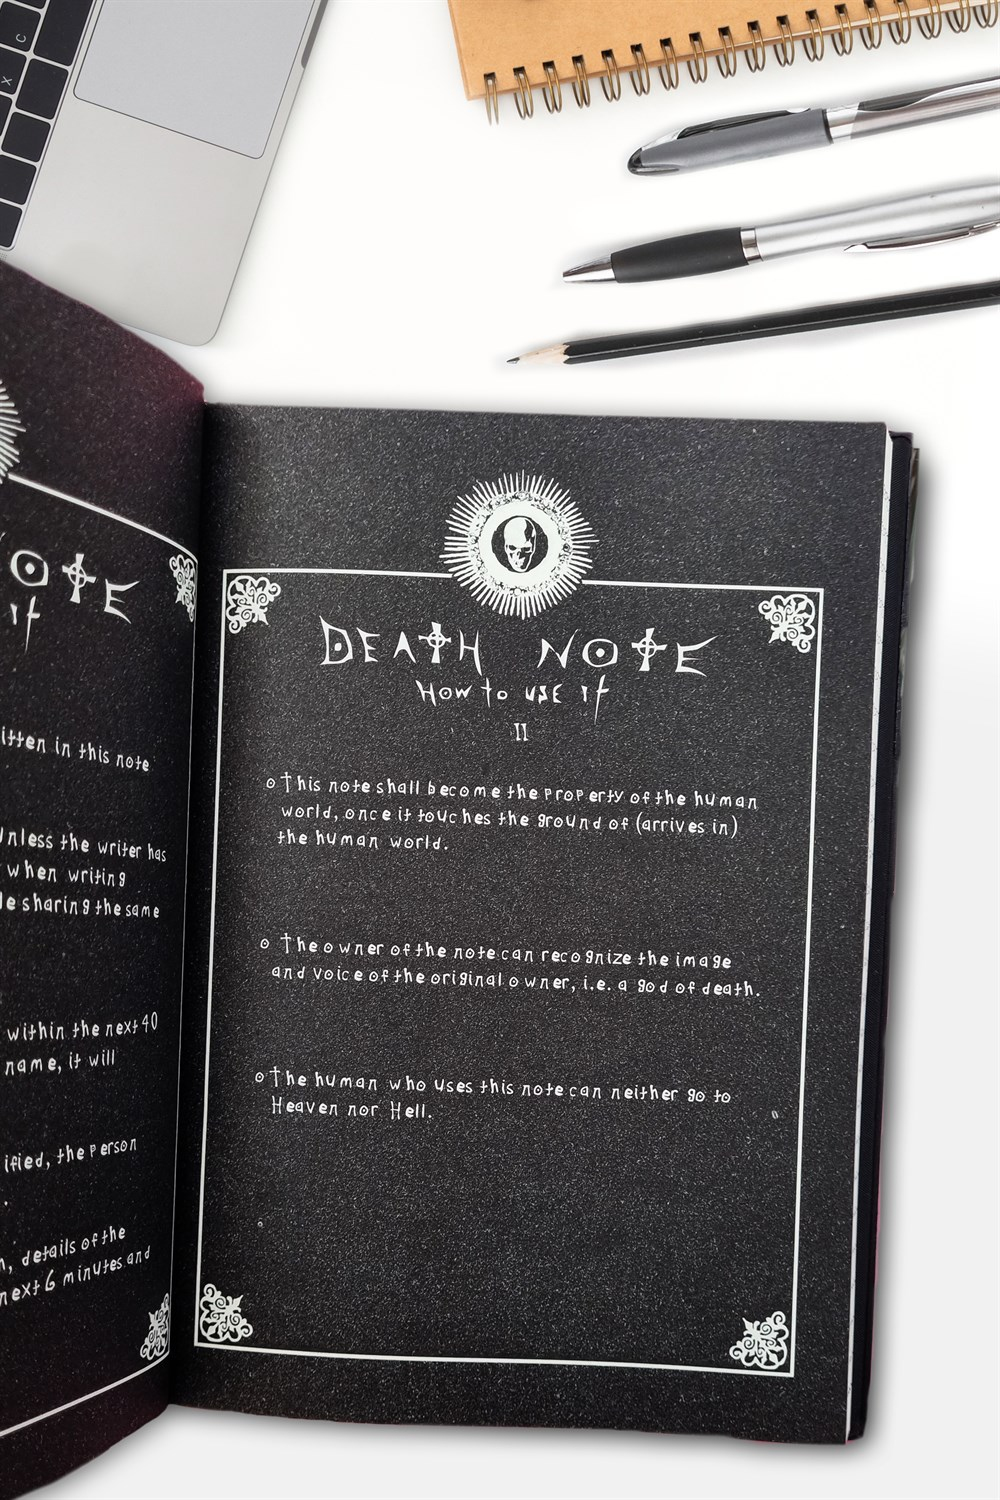 C
X
NOTE
it
itten in this note
unless the writer has
when writing
le sharing the same
within the next 40
name, it will
ified, the person
.
, details of the
next 6 minutes and
DEATH NOTE
How to use it
II
This note shall become the property of the human
world, once it touches the ground of (arrives in)
the human world.
The owner of the note can recognize the image
and voice of the original owner, i.e. a god of death.
The human who uses this note can neither go to
Heaven nor Hell.